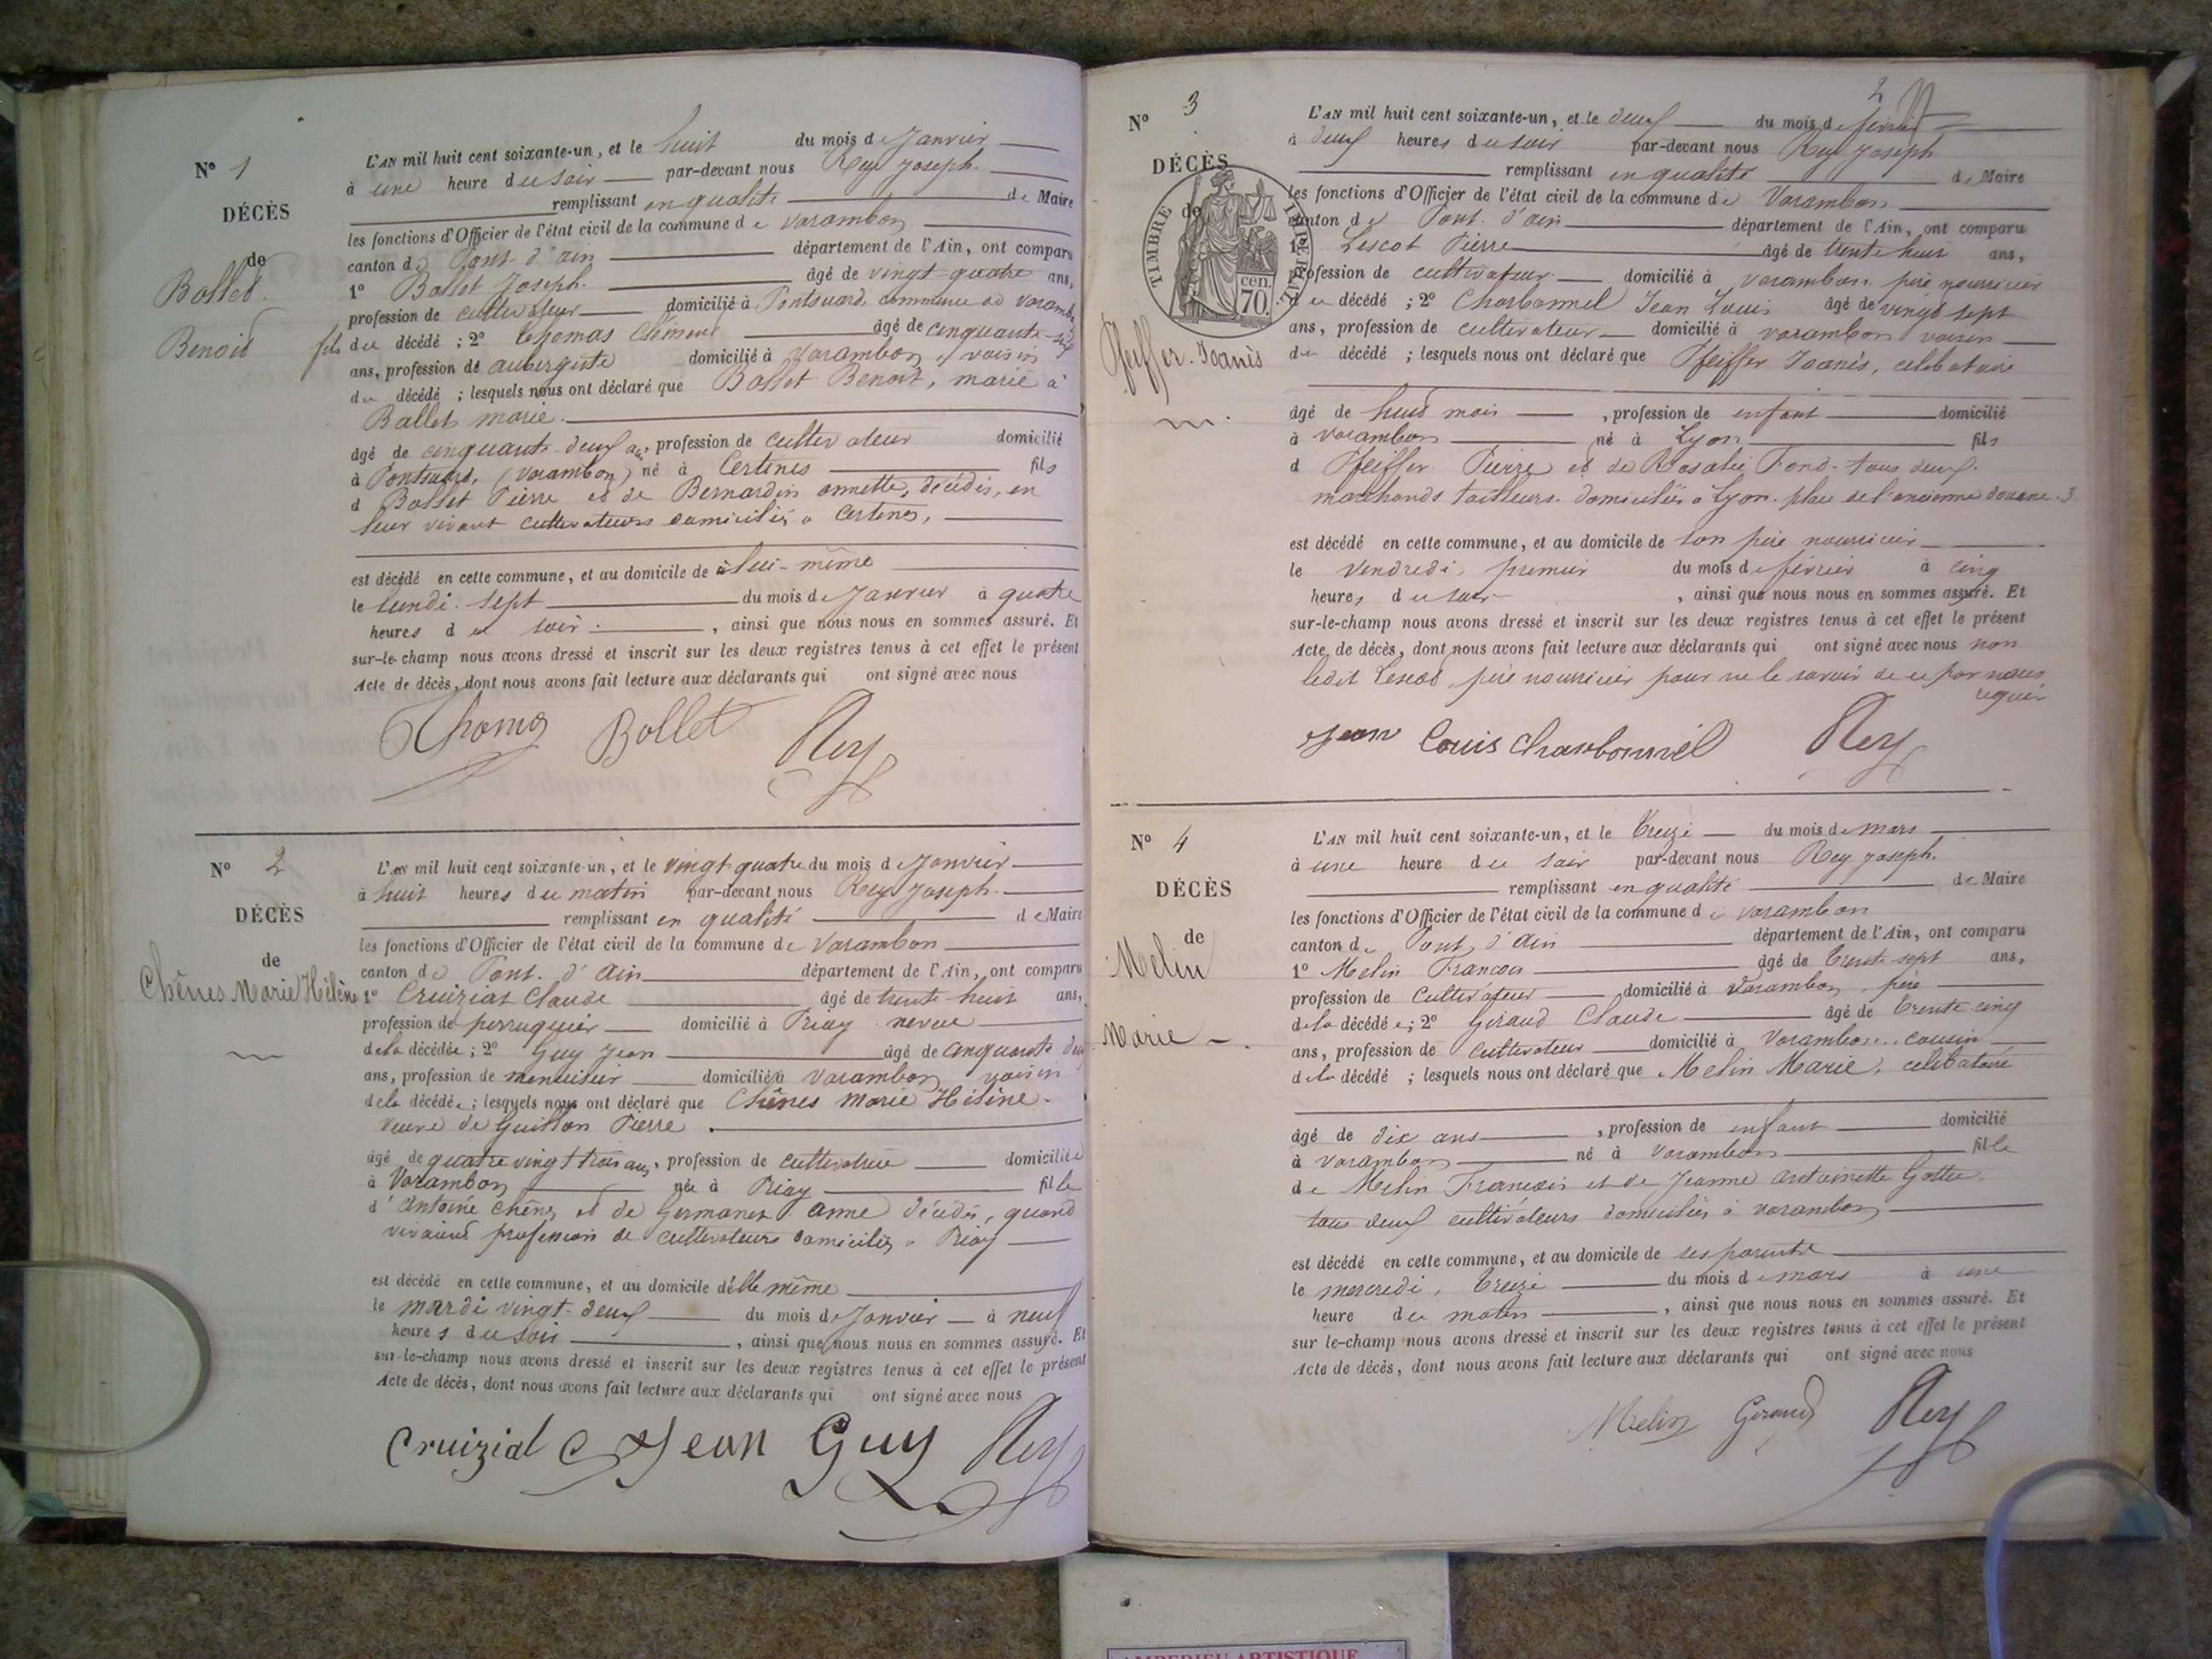 Nº 1
DÉCÈS
de
Bollet
Benoit
L'AN mil huit cent soixante-un, et le huit du mois de Janvier
à une heure du soir par-devant nous Rey Joseph.
remplissant en qualité de Maire
les fonctions d'Officier de l'état civil de la commune de Varambon
canton de Pont d'ain département de l'Ain, ont comparu
1º Bollet Joseph. âgé de vingt-quatre ans,
profession de cultivateur domicilié à Pontsuard commune de varambon
fils du décédé ; 2º Thomas Clément âgé de cinquante-six
ans, profession de aubergiste domicilié à Varambon, voisin
du décédé ; lesquels nous ont déclaré que Bollet Benoit, marié à
Ballet marie.
âgé de cinquante-deux ans, profession de cultivateur domicilié
à Pontsuard, (Varambon) né à Certines fils
d Bollet Pierre et de Bernardin annette, décédés, en
leur vivant cultivateurs domiciliés à Certines,
est décédé en cette commune, et au domicile de lui-même
le lundi sept du mois de Janvier à quatre
heures du soir , ainsi que nous nous en sommes assuré. Et
sur-le-champ nous avons dressé et inscrit sur les deux registres tenus à cet effet le présent
Acte de décès, dont nous avons fait lecture aux déclarants qui ont signé avec nous
Thomas Bollet Rey
Nº 2
DÉCÈS
de
Chênes Marie Hélène
L'AN mil huit cent soixante-un, et le vingt-quatre du mois de Janvier
à huit heures du matin par-devant nous Rey Joseph.
remplissant en qualité de Maire
les fonctions d'Officier de l'état civil de la commune de Varambon
canton de Pont. d'ain département de l'Ain, ont comparu
1º Cruiziat Claude âgé de trente-huit ans,
profession de perruquier domicilié à Priay neveu
de la décédée ; 2º Guy Jean âgé de cinquante deux
ans, profession de menuisier domicilié à Varambon voisin
de la décédée ; lesquels nous ont déclaré que Chênes Marie Hélène.
veuve de Guillon Pierre
âgé de quatre vingt trois ans, profession de cultivatrice domiciliée
à Varambon née à Priay fille
d'Antoine Chênes et de Germanet anne décédés, quand
vivaient profession de cultivateurs domiciliés à Priay
est décédé en cette commune, et au domicile d'elle même
le mardi vingt-deux du mois de Janvier à neuf
heures du soir , ainsi que nous nous en sommes assuré. Et
sur-le-champ nous avons dressé et inscrit sur les deux registres tenus à cet effet le présent
Acte de décès, dont nous avons fait lecture aux déclarants qui ont signé avec nous
Cruiziat C Jean Guy Rey
2
Nº 3
DÉCÈS
de
TIMBRE IMPÉRIAL
70 cen.
Pfeiffer. Joanès
L'AN mil huit cent soixante-un, et le deux du mois de février
à deux heures du soir par-devant nous Rey Joseph
remplissant en qualité de Maire
les fonctions d'Officier de l'état civil de la commune de Varambon
canton de Pont. d'ain département de l'Ain, ont comparu
1º Lescot Pierre âgé de trente huit ans,
profession de cultivateur domicilié à varambon père nourricier
du décédé ; 2º Charbonnel Jean Louis âgé de vingt sept
ans, profession de cultivateur domicilié à varambon voisin
du décédé ; lesquels nous ont déclaré que Pfeiffer Joanès, célibataire
âgé de huit mois , profession de enfant domicilié
à varambon né à Lyon fils
d Pfeiffer Pierre et de Rosalie Fond. tous deux
marchands tailleurs. domiciliés à Lyon. place de l'ancienne douane. 3
est décédé en cette commune, et au domicile de son père nourricier
le vendredi, premier du mois de février à cinq
heures du soir , ainsi que nous nous en sommes assuré. Et
sur-le-champ nous avons dressé et inscrit sur les deux registres tenus à cet effet le présent
Acte de décès, dont nous avons fait lecture aux déclarants qui ont signé avec nous non
ledit Lescot père nourricier pour ne le savoir de ce par nous
requis
Jean Louis Charbonnel Rey
Nº 4
DÉCÈS
de
Melin
Marie
L'AN mil huit cent soixante-un, et le treize du mois de mars
à une heure du soir par-devant nous Rey Joseph.
remplissant en qualité de Maire
les fonctions d'Officier de l'état civil de la commune de varambon
canton de Pont, d'Ain département de l'Ain, ont comparu
1º Melin Francois âgé de trente-sept ans,
profession de Cultivateur domicilié à Varambon, père
de la décédée ; 2º Giraud Claude âgé de trente-cinq
ans, profession de cultivateur domicilié à Varambon.. cousin
de la décédé ; lesquels nous ont déclaré que Melin Marie, célibataire
âgé de dix ans , profession de enfant domicilié
à varambon né à Varambon fille
de Melin Francois et de Jeanne antoinette
tous deux cultivateurs domiciliés à varambon
est décédé en cette commune, et au domicile de ses parents
le mercredi, treize du mois de mars à une
heure du matin , ainsi que nous nous en sommes assuré. Et
sur le-champ nous avons dressé et inscrit sur les deux registres tenus à cet effet le présent
Acte de décès, dont nous avons fait lecture aux déclarants qui ont signé avec nous
Melin Giraud Rey
AMPERIEU ARTISTIQUE